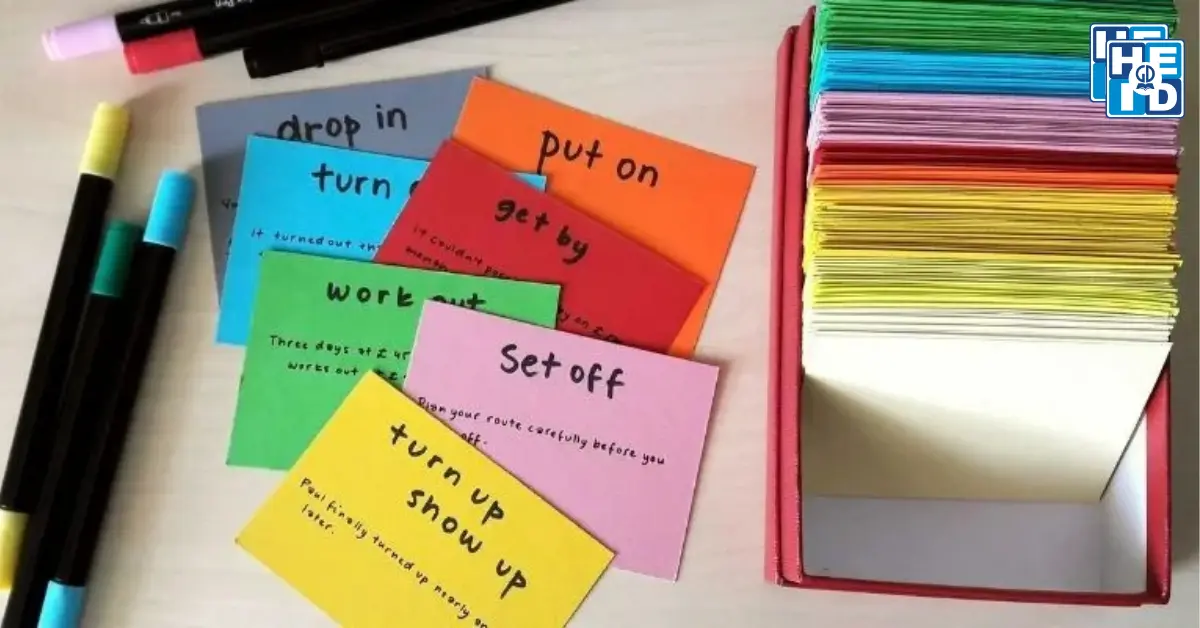 drop in
put on
turn
It turned out th
get by
It couldn't
work out
Three days at £ 45
works out
Set off
Plan your route carefully before you
off.
turn up
show up
Paul finally turned up nearly an
later.